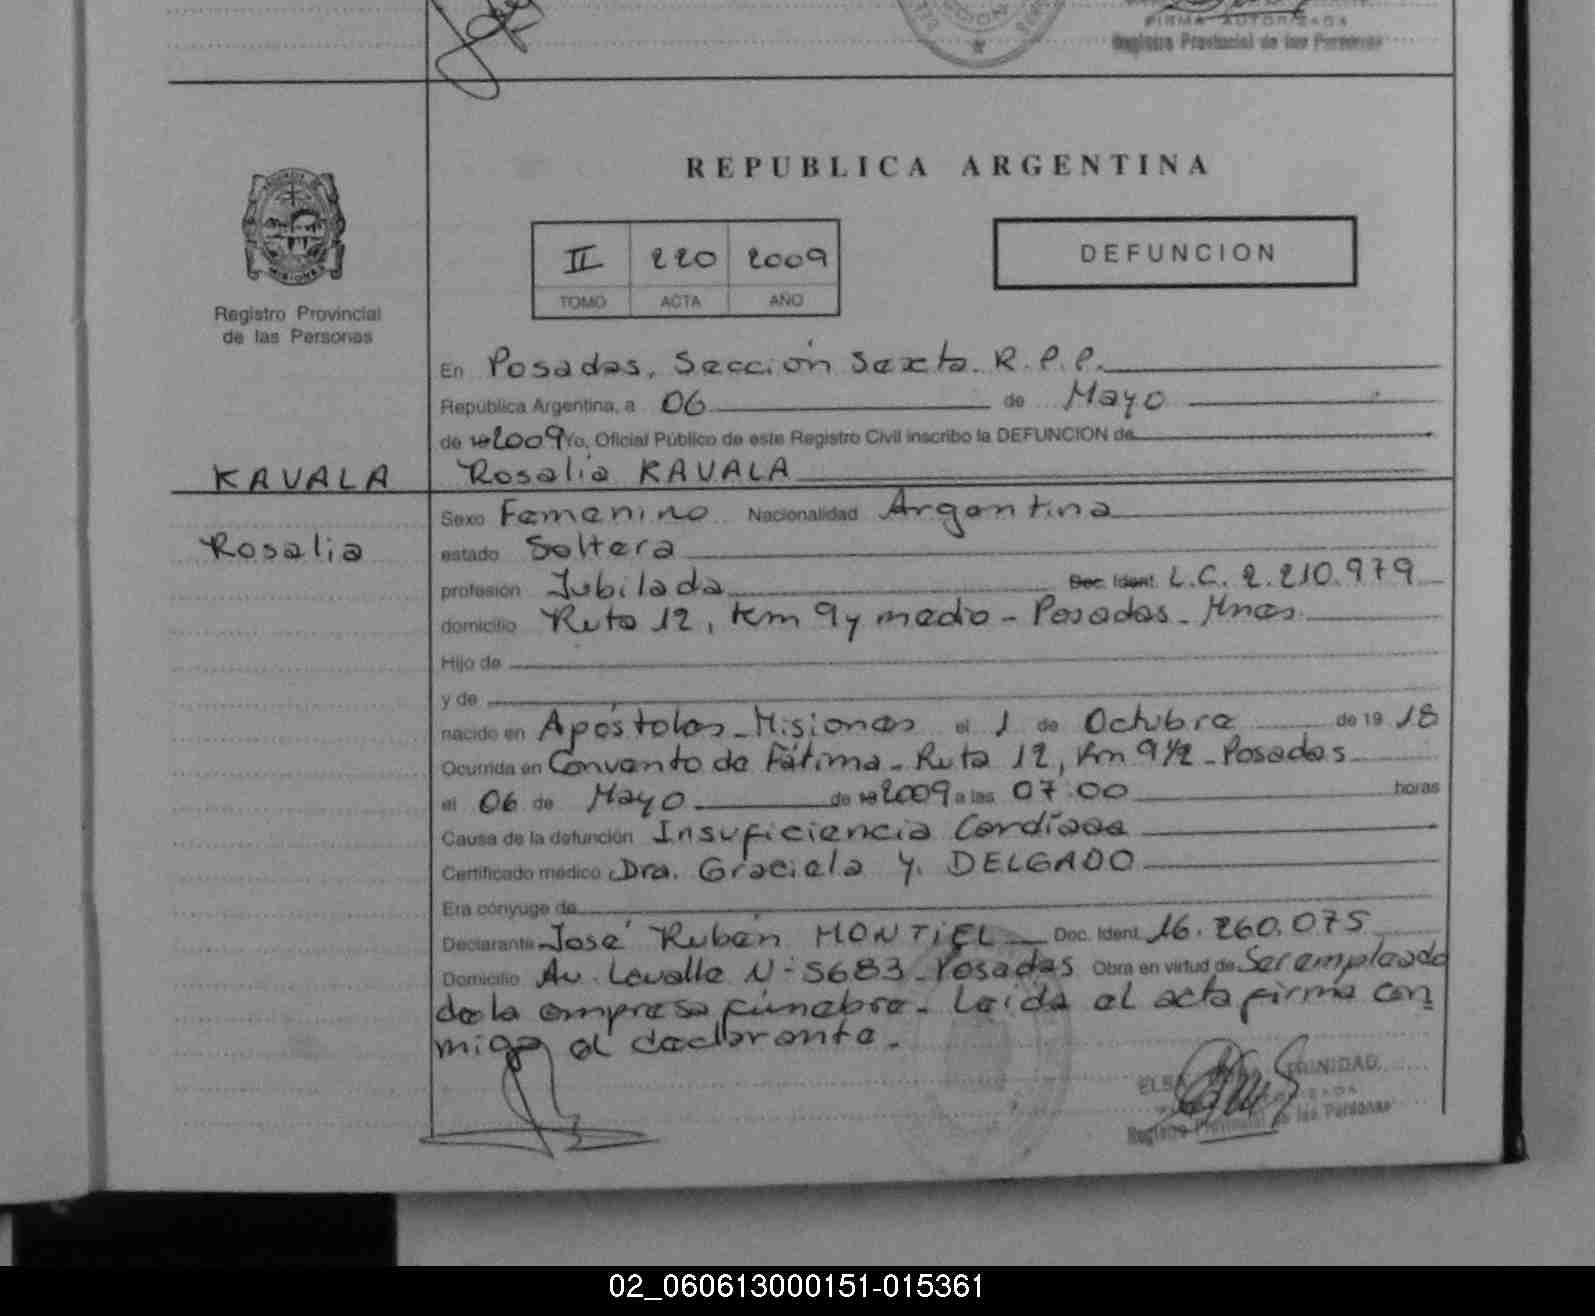 FIRMA AUTORIZADA
Registro Provincial de las Personas
REPUBLICA ARGENTINA
MISIONES
II 220 2009
TOMO ACTA AÑO
DEFUNCION
Registro Provincial
de las Personas
En Posadas, Sección Sexta. R.P.P.
República Argentina, a 06 de Mayo
de 19 2009 Yo, Oficial Público de este Registro Civil inscribo la DEFUNCION de
KAVALA Rosalia KAVALA
Sexo Femenino Nacionalidad Argentina
Rosalia estado Soltera
profesión Jubilada Doc. Ident. L.C. 2.210.979
domicilio Ruta 12, Km 9 y medio - Posadas - Mnes.
Hijo de
y de
nacido en Apóstoles - Misiones el 1 de Octubre de 19 18
Ocurrida en Convento de Fátima - Ruta 12, Km 9 1/2 - Posadas
el 06 de Mayo de 19 2009 a las 07:00 horas
Causa de la defunción Insuficiencia Cardíaca
Certificado médico Dra. Graciela Y. DELGADO
Era cónyuge de
Declarante José Rubén MONTIEL Doc. Ident. 16.260.075
Domicilio Av. Lavalle N - 5683 - Posadas Obra en virtud de Ser empleado
de la empresa fúnebre. Leída el acta firma con
migo el declarante.
ELSA TRINIDAD
Registro Provincial de las Personas
02_060613000151-015361